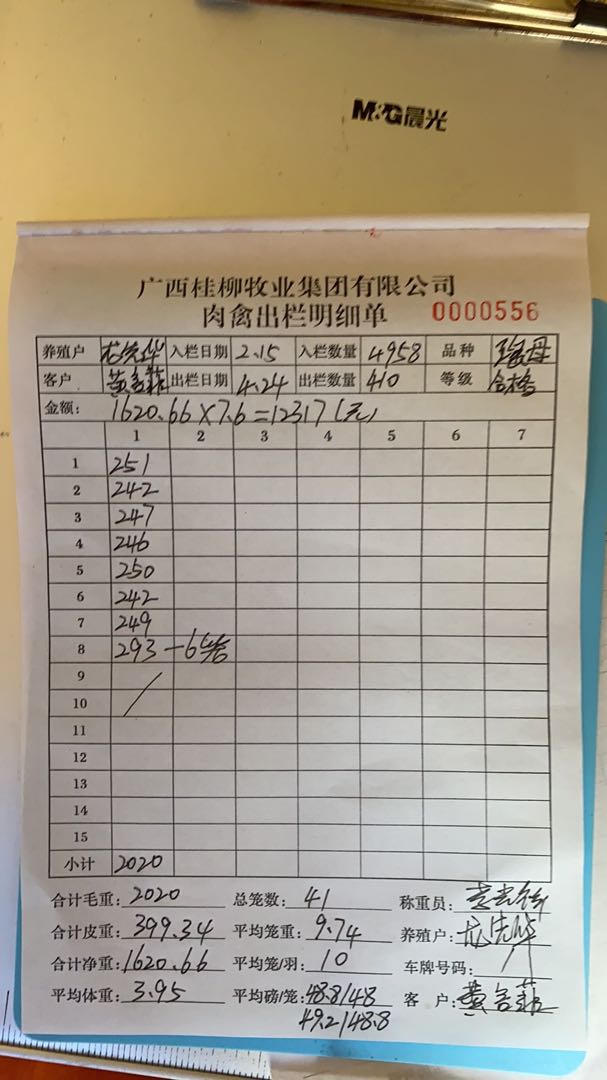 M&G晨光
广西桂柳牧业集团有限公司
肉禽出栏明细单 0000556
养殖户 入栏日期 2.15 入栏数量 4958 品种
客户 黄 菲 出栏日期 4.24 出栏数量 410 等级 合格
金额: 1620.66×7.6=12317(元)
1 2 3 4 5 6 7
1 251
2 242
3 247
4 246
5 250
6 242
7 249
8 293 -6笼
9
10
11
12
13
14
15
小计 2020
合计毛重: 2020 总笼数: 41 称重员:
合计皮重: 399.34 平均笼重: 9.74 养殖户:
合计净重: 1620.66 平均笼/羽: 10 车牌号码: /
平均体重: 3.95 平均磅/笼: 48.8/48 客 户: 黄 菲
49.2/48.8